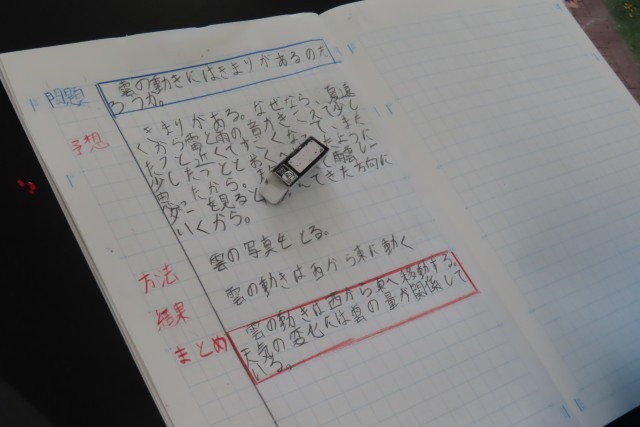 問題
雲の動きにはきまりがあるのだ
ろうか。
予想
きまりがある。なぜなら、真遠
くから雷と雨の音がきこえて少し
たつと近くですごくなって、また
少したつととお
思ったから。
ダーを見ると
てきた方向に
いくから。
方法
雲の写真をとる。
結果
雲の動きは西から東に動く
まとめ
雲の動きは西から東へ移動する。
天気の変化には雲の量が関係して
いる。